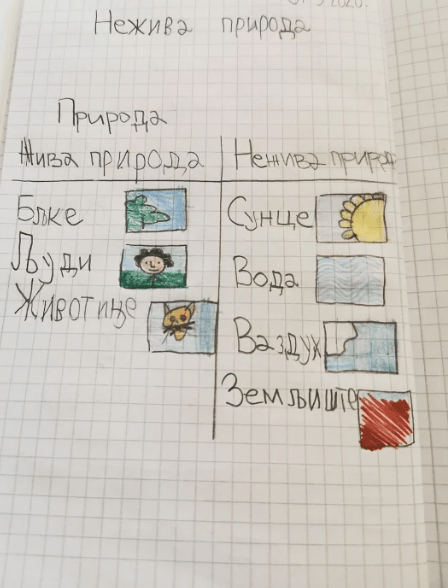 Нежива природа
Природа
Жива природа
Нежива природа
Бљке
Људи
Животиње
Сунце
Вода
Ваздух
Земљиште